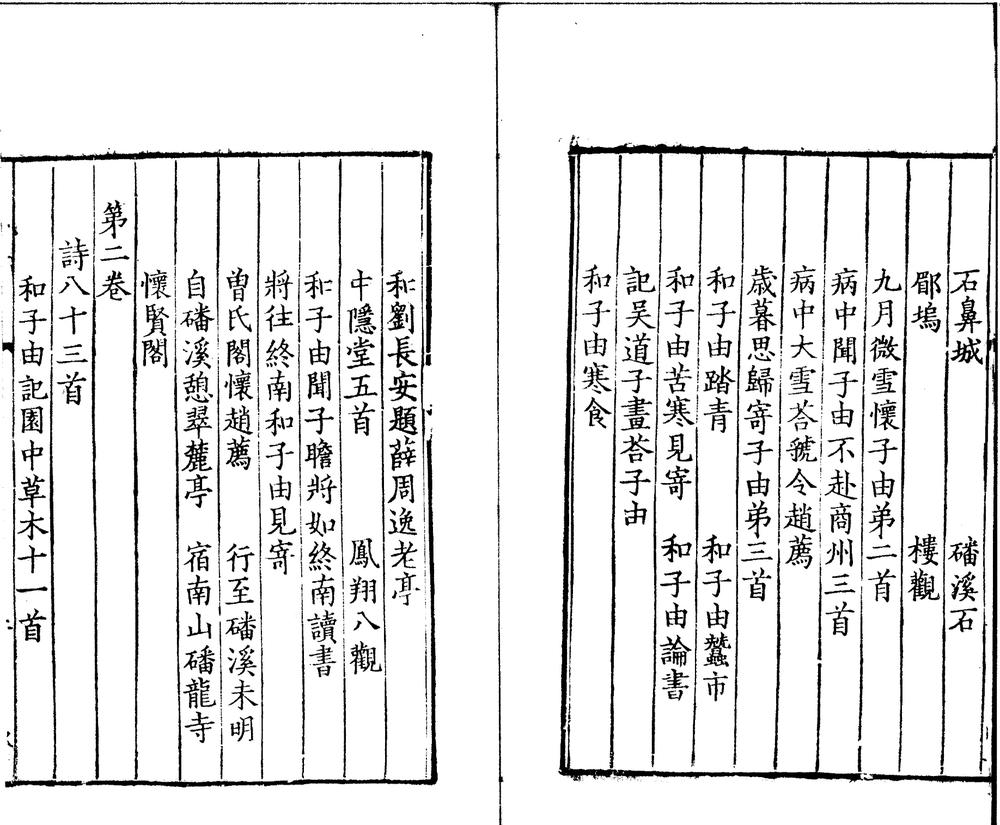 石鼻城　磻溪石
郿塢　樓觀
九月微雪懷子由弟二首
病中聞子由不赴商州三首
病中大雪荅虢令趙薦
歲暮思歸寄子由弟三首
和子由踏青　和子由蠶市
和子由苦寒見寄　和子由論書
記吴道子畫荅子由
和子由寒食
和劉長安題薛周逸老亭
中隱堂五首　鳳翔八觀
和子由聞子瞻將如終南讀書
將往終南和子由見寄
曽氏閣懷趙薦　行至磻溪未明
自磻溪憩翠麓亭　宿南山磻龍寺
懷賢閣
第二卷
詩八十三首
和子由記園中草木十一首